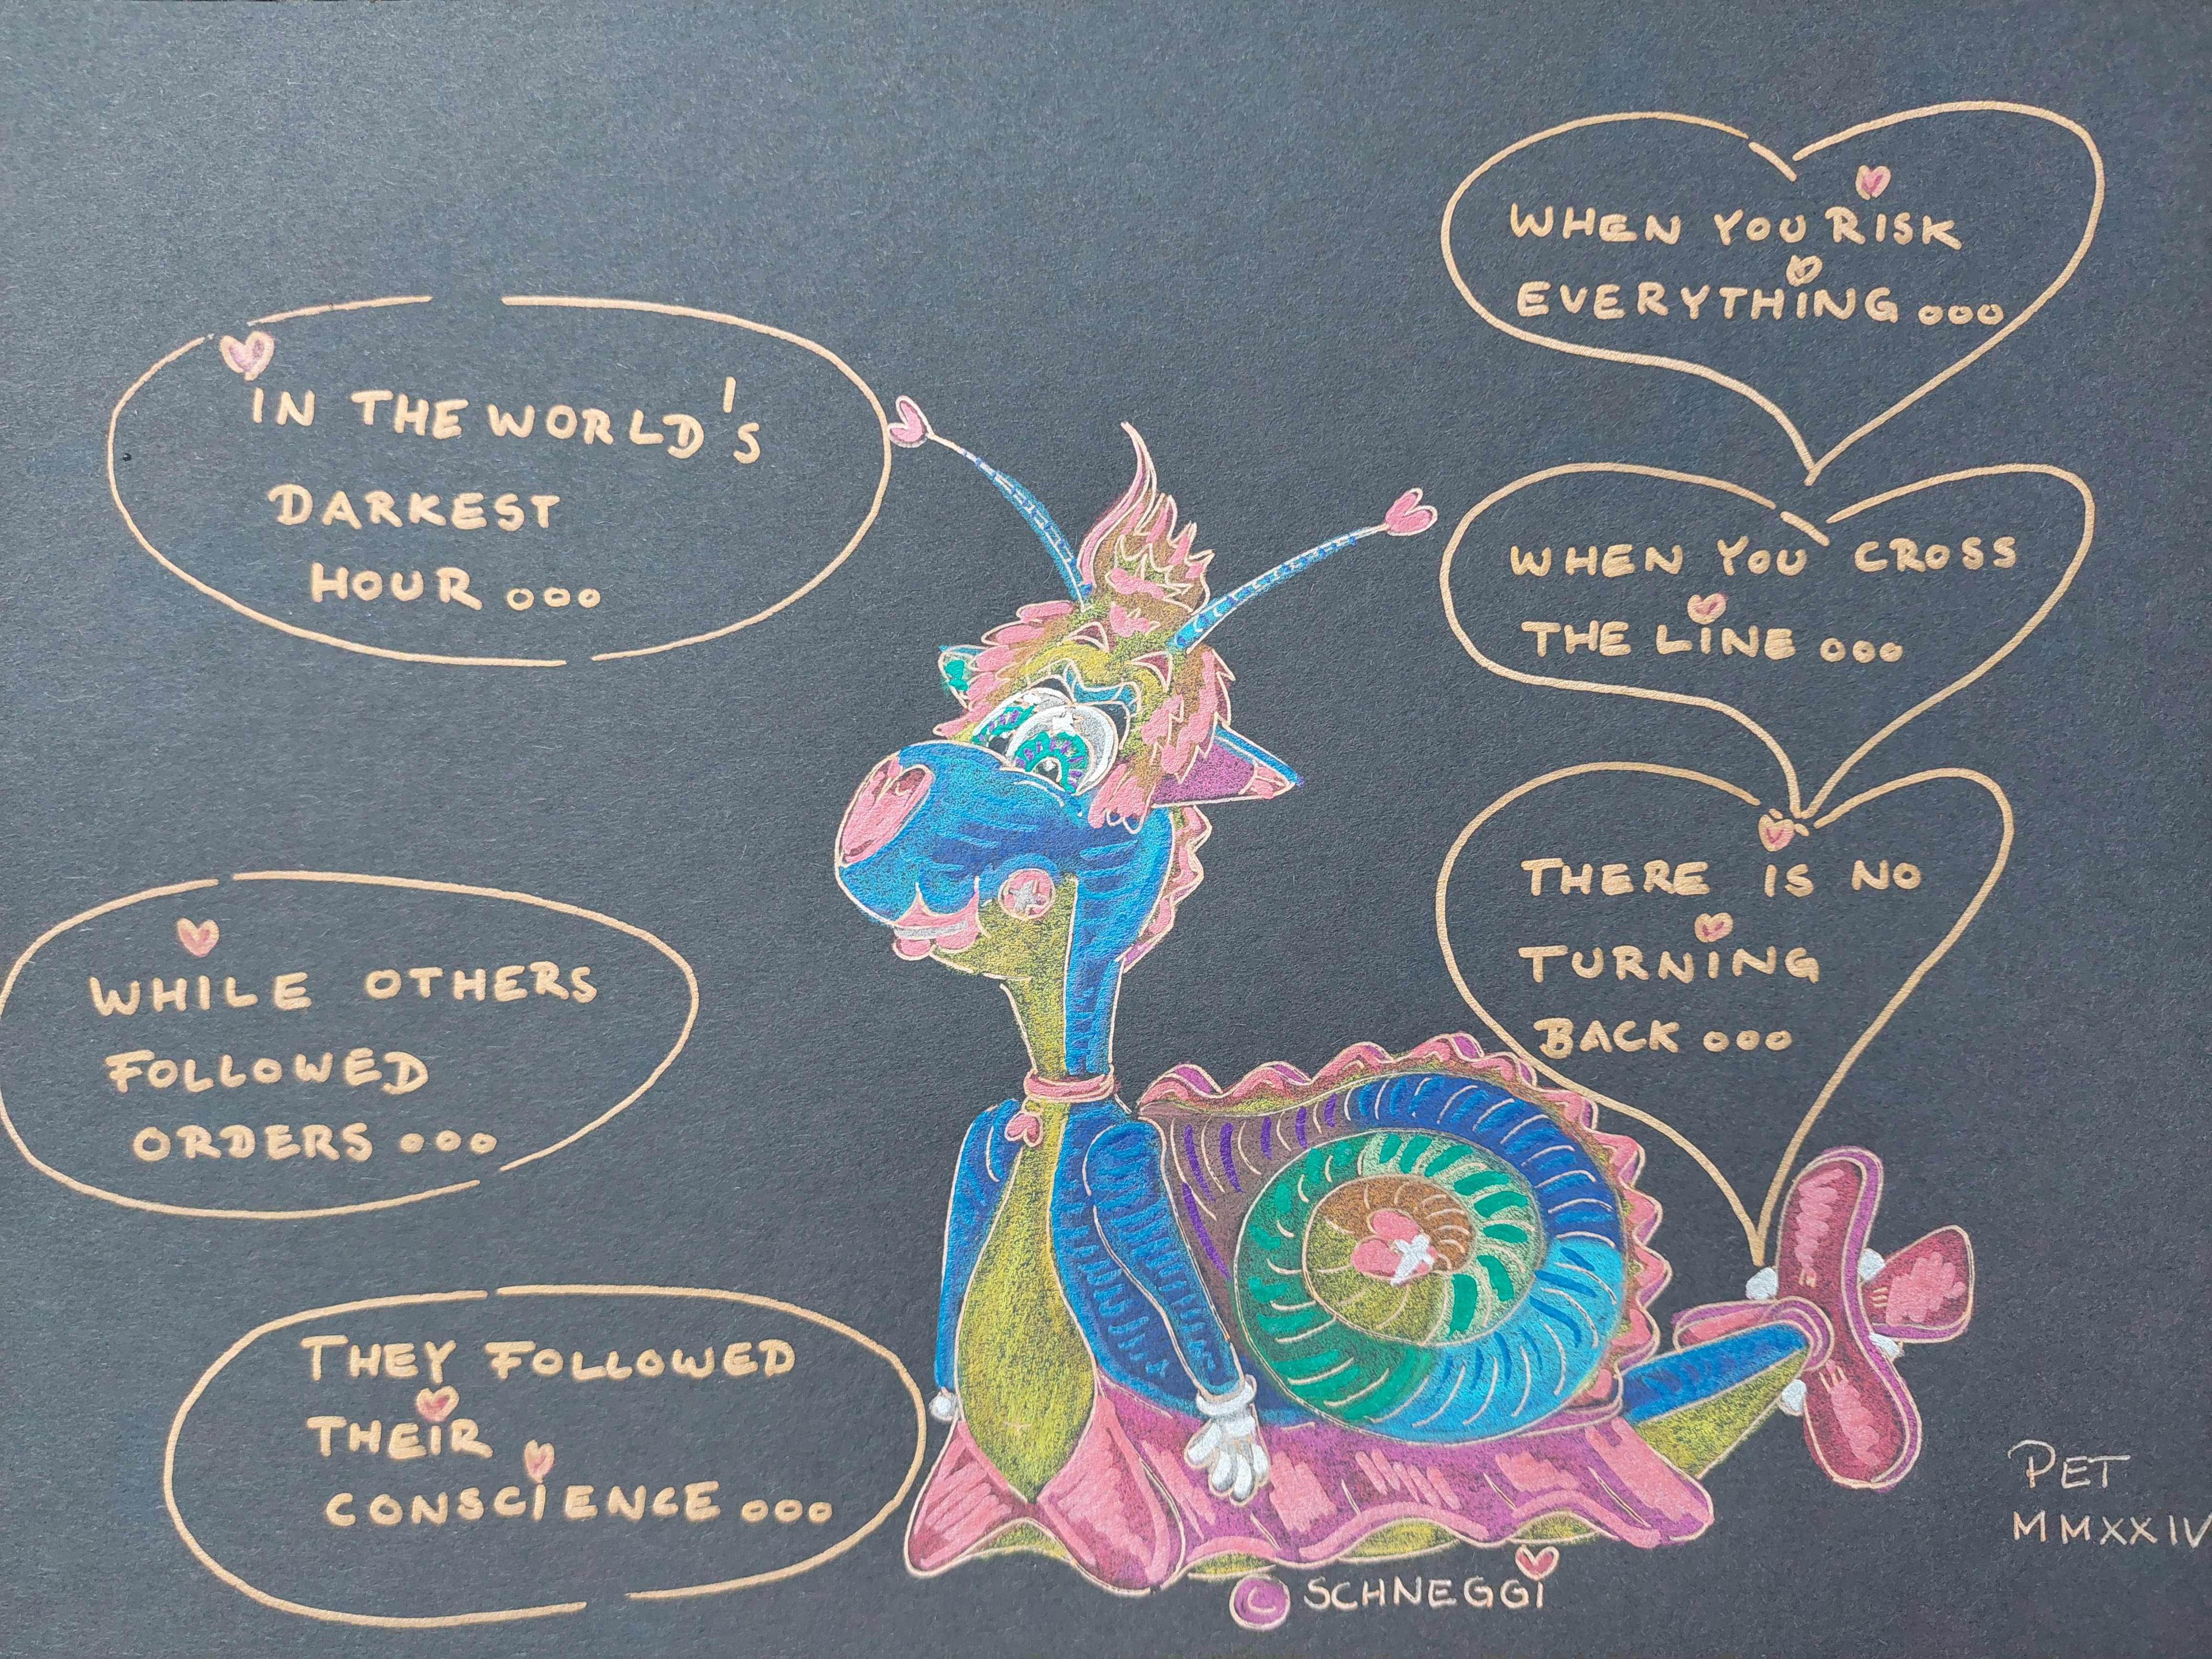 IN THE WORLD'S
DARKEST
HOUR ...
WHILE OTHERS
FOLLOWED
ORDERS ...
THEY FOLLOWED
THEIR
CONSCIENCE ...
WHEN YOU RISK
EVERYTHING ...
WHEN YOU CROSS
THE LINE ...
THERE IS NO
TURNING
BACK ...
© SCHNEGGI
PET
MMXXIV